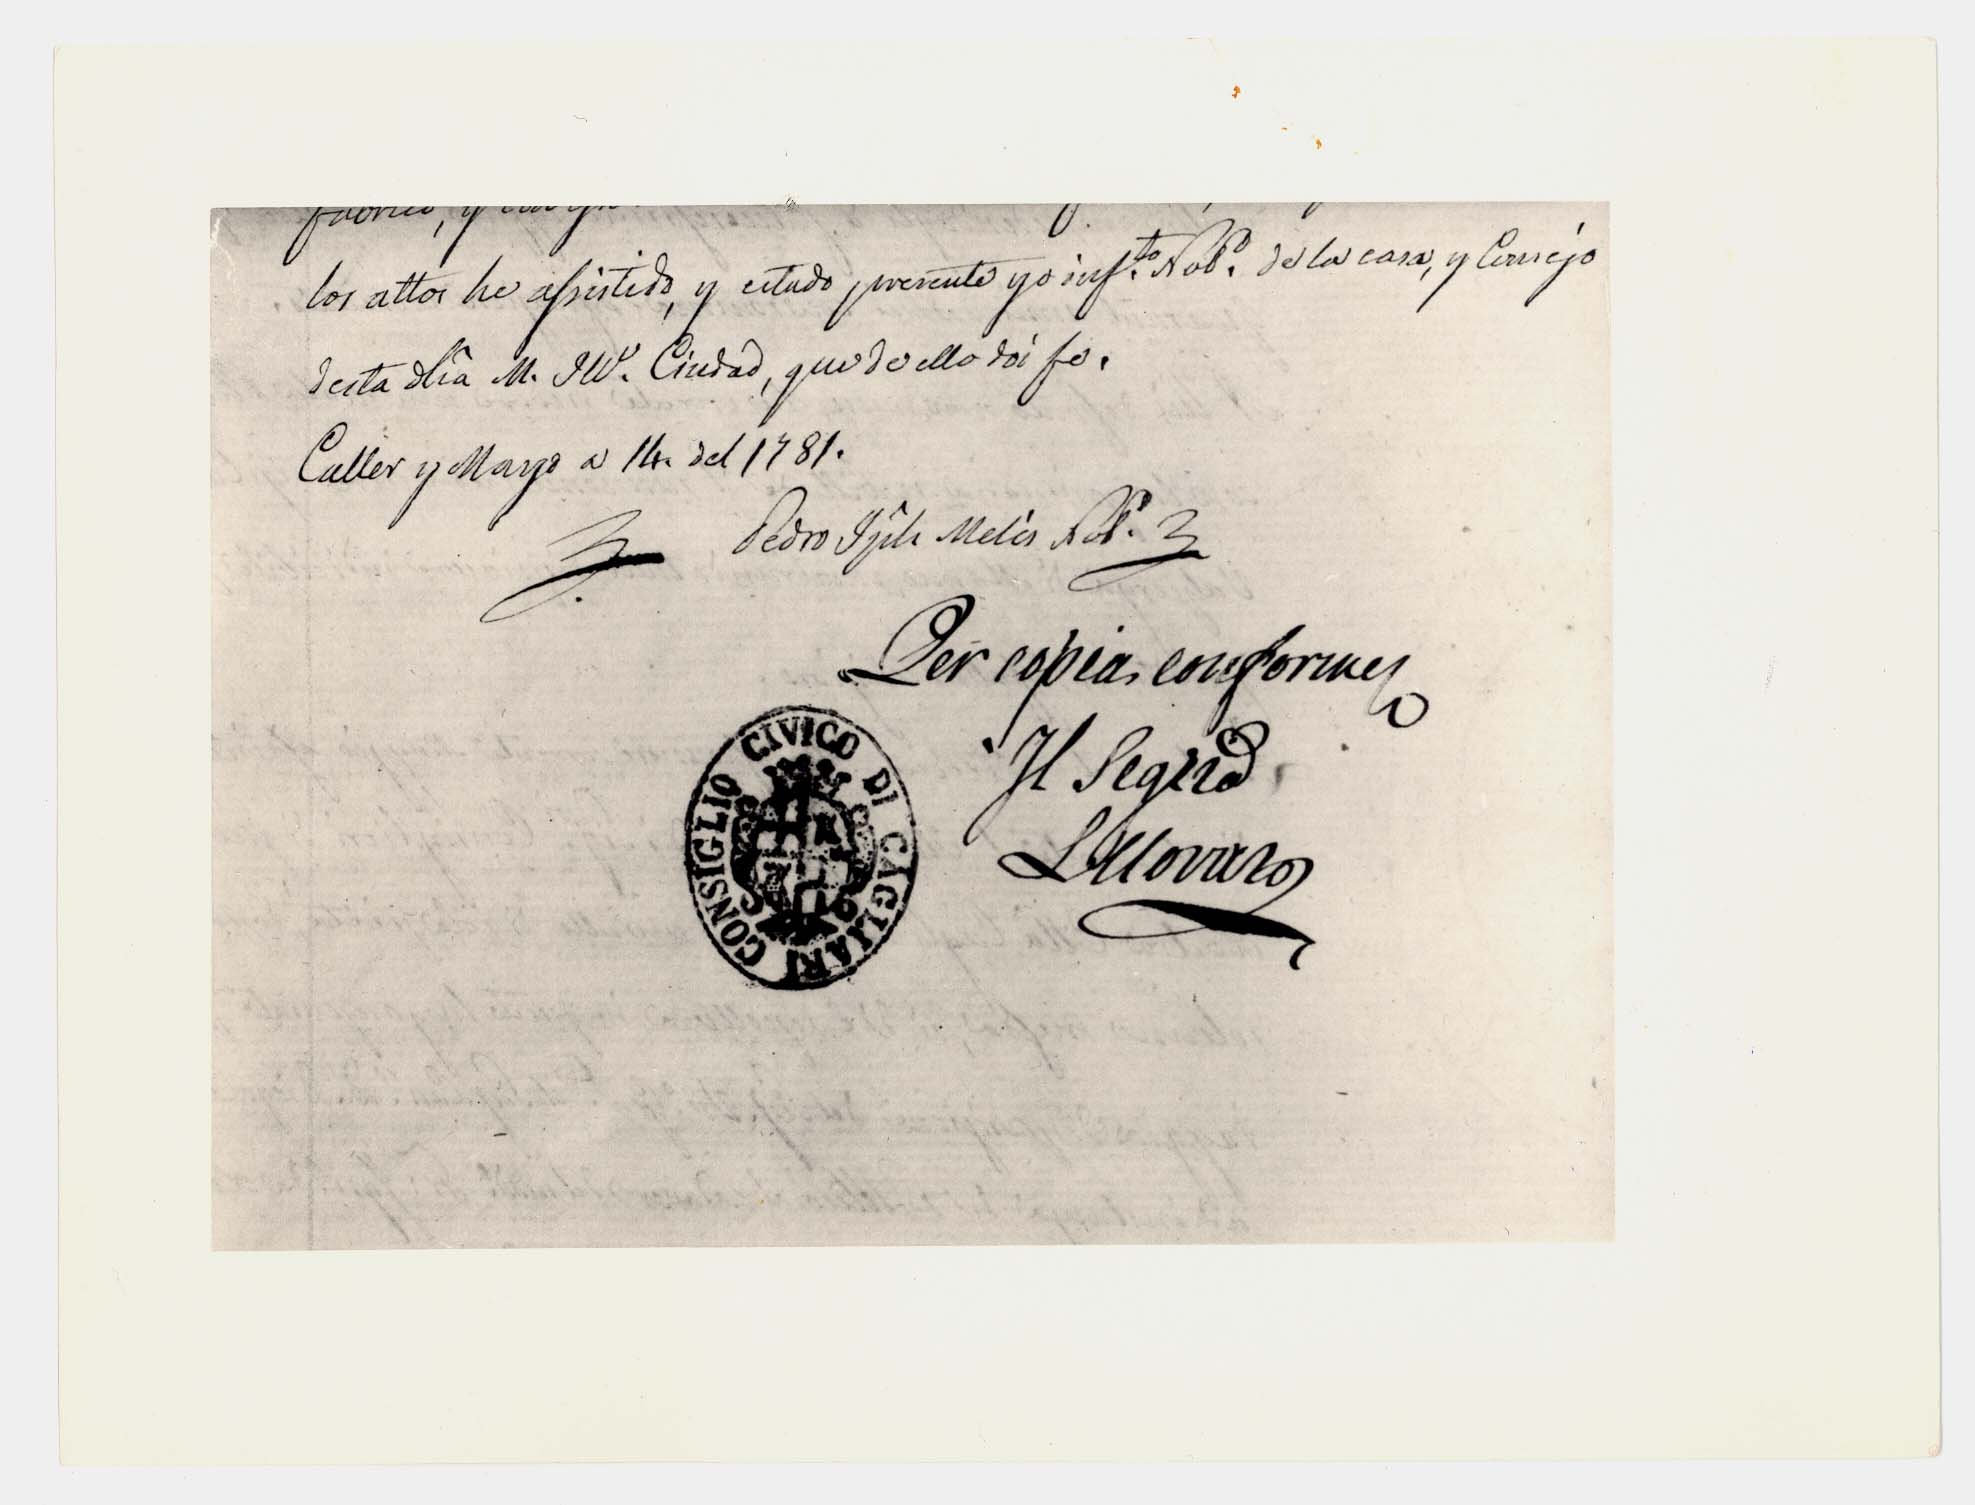 los attos he assistido, y estado presente yo inf.to Not.o de la casa, y Consejo
desta dha M. Ill.e Ciudad, que de ello doi fe.
Caller y Marzo a 14. del 1781.
Pedro Melis Not.o
Per copia conforme
Il Segr.o
CONSIGLIO CIVICO DI CAGLIARI